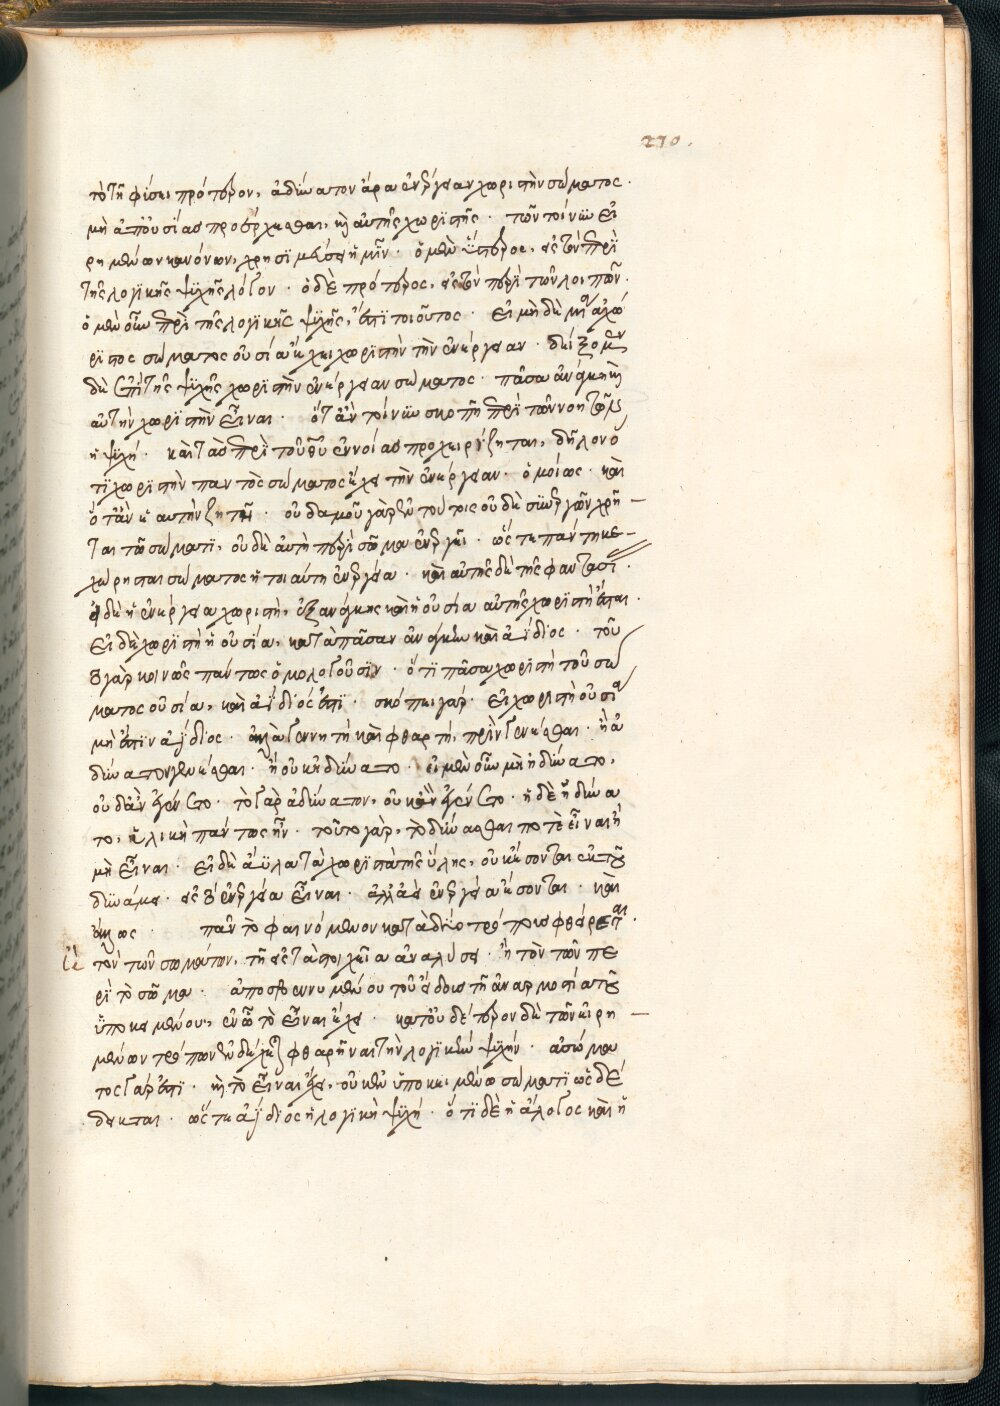 270.
τὸ τῇ φύσει πρότερον, ἀδύνατον ἄρα ἐνέργειαν χωριστὴν σώματος.
μὴ ἀπὸ οὐσίας προέρχεσθαι, καὶ αὐτῆς χωριστῆς. τῶν τοίνυν εἰ
ρημένων κανόνων, χρησιμεύσει ἡμῖν. ὁ μὲν ὕστερος, εἰς τὸν περὶ
τῆς λογικῆς ψυχῆς λόγον. ὁ δὲ πρότερος, εἰς τὸν περὶ τῶν λοιπῶν.
ὁ μὲν οὖν περὶ τῆς λογικῆς ψυχῆς, ἐστὶ τοιοῦτος. εἰ μηδεμία ἀχώ
ριστος σώματος οὐσία ἔχει χωριστὴν τὴν ἐνέργειαν. δείξομεν
δὲ ἐπὶ τῆς ψυχῆς χωριστὴν ἐνέργειαν σώματος. πᾶσα ἀνάγκη καὶ
αὐτὴν χωριστὴν εἶναι. ὅταν τοίνυν σκοπῇ περὶ τῶν νοητῶν
ἡ ψυχή. καὶ τὰς περὶ τοῦ θεοῦ ἐννοίας προχειρίζηται, δῆλον ὅ
τι χωριστὴν παντὸς σώματος ἔχει τὴν ἐνέργειαν. ὁμοίως. καὶ
ὅταν ἑαυτὴν ζητῇ. οὐδαμοῦ γὰρ ἐν τούτοις οὐδὲ συνεργῶν χρῆ
ται τῷ σώματι, οὐδὲ αὐτὴ περὶ σῶμα ἐνεργεῖ. ὥστε πάντη κε
χώρισται σώματος ἡ τοιαύτη ἐνέργεια. καὶ αὐτῆς δὲ τῆς φαντασί.
δὲ ἡ ἐνέργεια χωριστή, ἐξανάγκης καὶ ἡ οὐσία αὐτῆς χωριστὴ ἔσται.
εἰ δὲ χωριστὴ ἡ οὐσία, κατὰ πᾶσαν ἀνάγκην καὶ ἀΐδιος. τοῦ
το γὰρ κοινῶς πάντως ὁμολογοῦσιν. ὅτι πᾶσα χωριστὴ τοῦ σώ
ματος οὐσία, καὶ ἀΐδιός ἐστι. σκόπει γάρ. εἰ χωριστὴ οὐσία
μή ἐστιν ἀΐδιος. ἀλλὰ γεννητὴ καὶ φθαρτή, πρὶν γενέσθαι. ἢ ἐ
δύνατο γενέσθαι. ἢ οὐκ ἐδύνατο. εἰ μὲν οὖν μὴ ἠδύνατο,
οὐδ᾽ ἂν ἐγένετο. τὸ γὰρ ἀδύνατον, οὐκ ἂν ἐγένετο. εἰ δὲ ἠδύνα
το, ὑλικὴ πάντως ἦν. τοῦτο γάρ, τὸ δύνασθαι ποτὲ εἶναι ἢ
μὴ εἶναι. εἰ δὲ ἄϋλα τὰ χωριστὰ τῆς ὕλης, οὐχ ἕξονται ἐκ τοῦ
δυνάμει. εἰς τὸ ἐνέργεια εἶναι. ἀλλ᾽ ἀεὶ ἐνέργεια ἔσονται. καὶ
ἄλλως. πᾶν τὸ φαινόμενον κατὰ δύο τρόπους φθείρεται.
ἢ τὸν τῶν σωμάτων, τῇ εἰς τὰ στοιχεῖα ἀναλύσει. ἢ τὸν τῶν πε
ρὶ τὸ σῶμα. ἀποσβεννυμένου τοῦ εἴδους τῇ ἀναρμοστίᾳ τοῦ
ὑποκειμένου, ἐν ᾧ τὸ εἶναι ἔχει. κατ᾽ οὐδέτερον δὲ τῶν εἰρη
μένων τρόπων ἐνδέχεται φθαρῆναι τὴν λογικὴν ψυχήν. ἀσώμα
τος γάρ ἐστι. καὶ τὸ εἶναι ἔχει, οὐκ ἐν ὑποκειμένῳ σώματι ὡς δέ
δεικται. ὥστε ἀΐδιος ἡ λογικὴ ψυχή. ὅτι δὲ ἡ ἄλογος καὶ ἡ